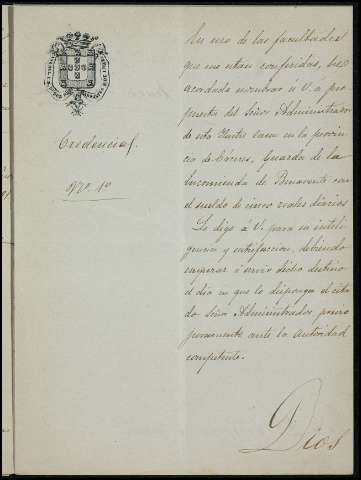 Credencial.
Nº. 10
En uso de las facultades
que me estan conferidas, he
acordado nombrar á V. á pro
puesta del Señor Administrador
de esta Ilustre casa en la provin
cia de Cáceres, Guarda de la
Encomienda de Benavente con
el sueldo de cinco reales diarios
Lo digo a V. para su inteli
gencia y satisfaccion, debiendo
empezar á servir dicho destino
el dia en que lo disponga el cita
do Señor Administrador previo
juramento ante la autoridad
competente.
Dios